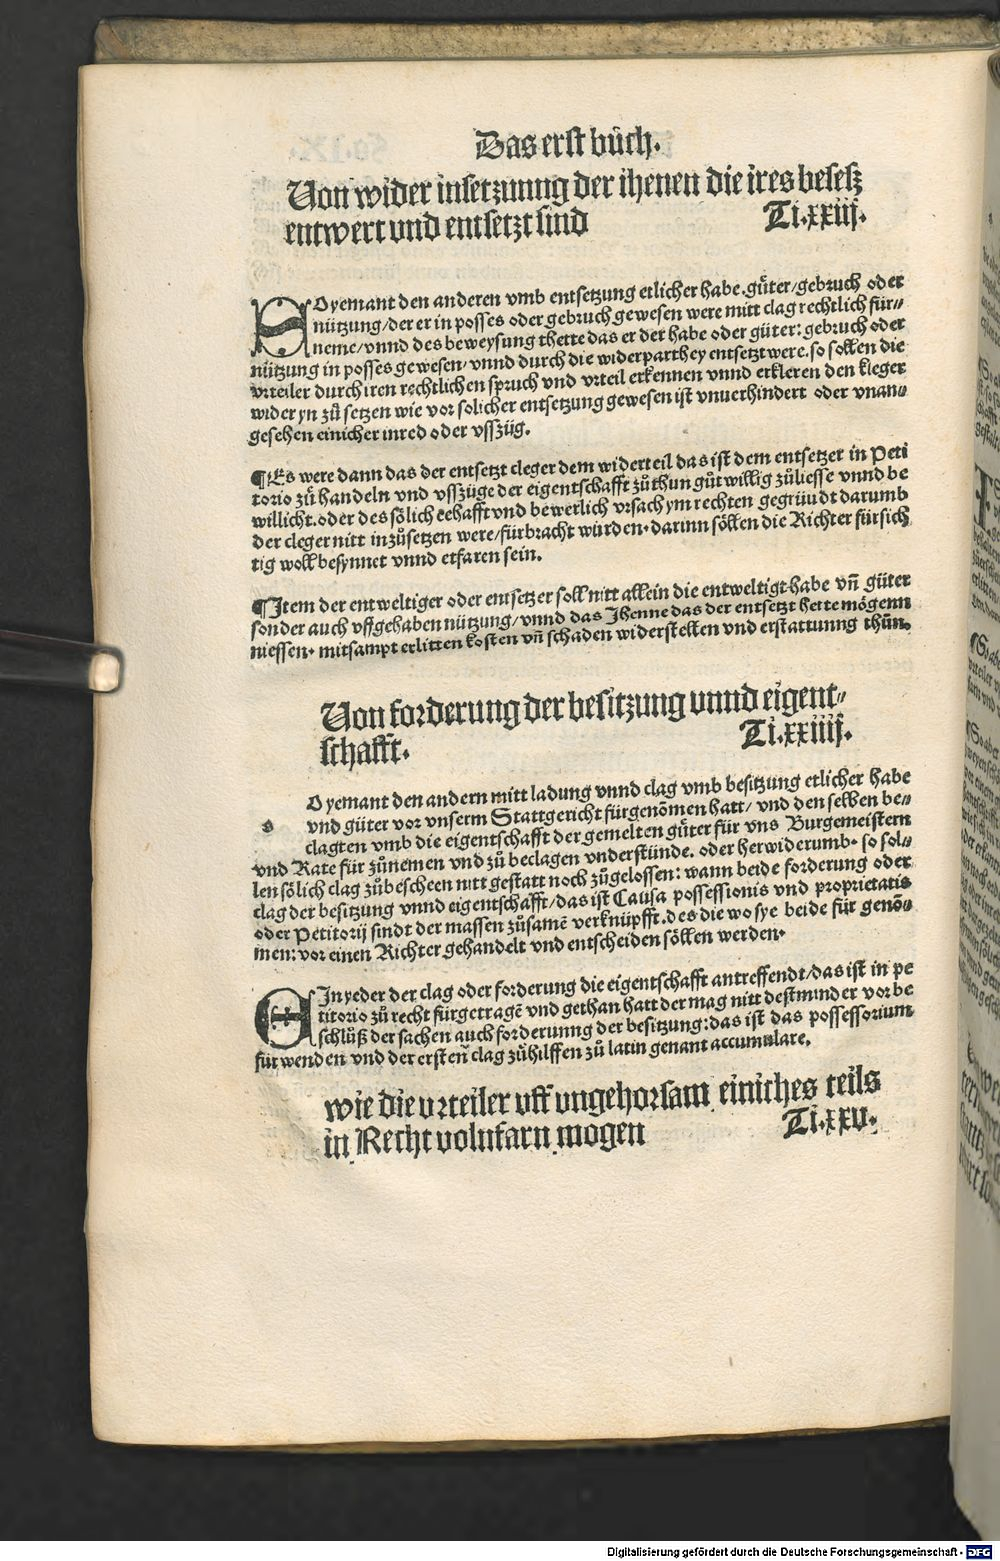 Das erst bůch.
Von wider insetzunng der ihenen die ires besesz
entwert und entsetzt sind Ti.xxiij.
SOyemant den anderen vmb entsetzung etlicher habe.gůter/gebruch oder
nützung/der er in posses oder gebruch gewesen were mitt clag rechtlich für⸗
neme/vnnd des beweysung thette das er der habe oder gůter: gebruch oder
nützung in posses gewesen/vnnd durch die widerparthey entsetzt were.so sollen die
vrteiler durch iren rechtlichen spruch vnd vrteil erkennen vnnd erkleren den kleger
wider yn zů setzen wie vor solicher entsetzung gewesen ist vnuerhindert oder vnan⸗
gesehen einicher inred oder vsszüg.
¶Es were dann das der entsetzt cleger dem widerteil das ist dem entsetzer in Peti
torio zů handeln vnd vsszüge der eigentschafft zů thun gůt willig zůliesse vnnd be
willicht.oder des sölich eehafft vnd bewerlich vrsach ym rechten gegrüudt darumb
der cleger nitt inzůsetzen were/fürbracht würden.darinn söllen die Richter fürsich
tig woll besynnet vnnd erfaren sein.
¶Item der entweltiger oder entsetzer soll nitt allein die entweltigt habe vñ gůter
sonder auch vffgehaben nützung/vnnd das Jhenne das der entsetzt hette mögenn
niessen. mitsampt erlitten kosten vñ schaden widerstellen vnd erstattunng thůn.
Von forderung der besitzung unnd eigent⸗
schafft. Ti.xxiiij.
s Oyemant den andern mitt ladung vnnd clag vmb besitzung etlicher habe
vnd gůter vor vnserm Stattgericht fürgenõmen hatt/ vnd den selben be⸗
clagten vmb die eigentschafft der gemelten gůter für vns Burgemeistern
vnd Rate für zůnemen vnd zů beclagen vnderstünde. oder herwiderumb. so sol⸗
len sölich clag zůbescheen nitt gestatt noch zůgelossen: wann beide forderung oder
clag der besitzung vnnd eigentschafft/das ist Causa possessionis vnd proprietatis
oder Petitorij sindt der massen zůsamẽ verknüpfft.des die wo sye beide für genõ⸗
men: vor einen Richter gehandelt vnd entscheiden söllen werden.
EIn yeder der clag oder forderung die eigentschafft antreffendt/das ist in pe
titorio zů recht fürgetragẽ vnd gethan hatt der mag nitt destminder vor be
schlůß der sachen auch forderunng der besitzung:das ist das possessorium
für wenden vnd der ersten clag zůhilffen zů latin genant accumulare.
wie die vrteiler uff ungehorsam einiches teils
in Recht volnfarn mogen Ti.xxv.
Digitalisierung gefördert durch die Deutsche Forschungsgemeinschaft - DFG